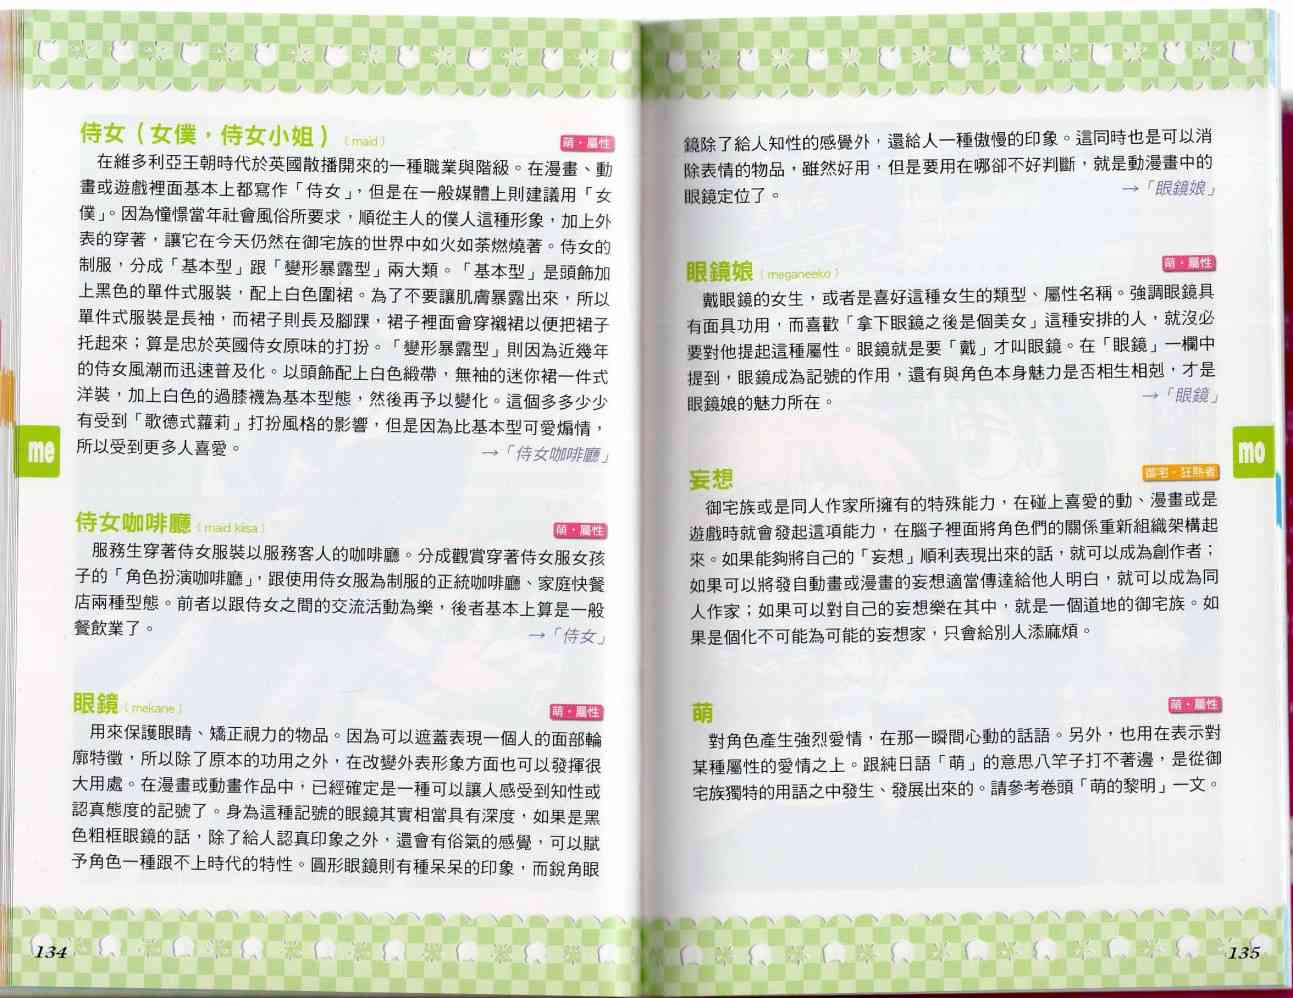 侍女（女僕，侍女小姐）（maid） 萌・屬性
在維多利亞王朝時代於英國散播開來的一種職業與階級。在漫畫、動
畫或遊戲裡面基本上都寫作「侍女」，但是在一般媒體上則建議用「女
僕」。因為憧憬當年社會風俗所要求，順從主人的僕人這種形象，加上外
表的穿著，讓它在今天仍然在御宅族的世界中如火如荼燃燒著。侍女的
制服，分成「基本型」跟「變形暴露型」兩大類。「基本型」是頭飾加
上黑色的單件式服裝，配上白色圍裙。為了不要讓肌膚暴露出來，所以
單件式服裝是長袖，而裙子則長及腳踝，裙子裡面會穿襯裙以便把裙子
托起來；算是忠於英國侍女原味的打扮。「變形暴露型」則因為近幾年
的侍女風潮而迅速普及化。以頭飾配上白色緞帶，無袖的迷你裙一件式
洋裝，加上白色的過膝襪為基本型態，然後再予以變化。這個多多少少
有受到「歌德式蘿莉」打扮風格的影響，但是因為比基本型可愛煽情，
所以受到更多人喜愛。 →「侍女咖啡廳」
me
侍女咖啡廳（maid kissa） 萌・屬性
服務生穿著侍女服裝以服務客人的咖啡廳。分成觀賞穿著侍女服女孩
子的「角色扮演咖啡廳」，跟使用侍女服為制服的正統咖啡廳、家庭快餐
店兩種型態。前者以跟侍女之間的交流活動為樂，後者基本上算是一般
餐飲業了。 →「侍女」
眼鏡（mekane） 萌・屬性
用來保護眼睛、矯正視力的物品。因為可以遮蓋表現一個人的面部輪
廓特徵，所以除了原本的功用之外，在改變外表形象方面也可以發揮很
大用處。在漫畫或動畫作品中，已經確定是一種可以讓人感受到知性或
認真態度的記號了。身為這種記號的眼鏡其實相當具有深度，如果是黑
色粗框眼鏡的話，除了給人認真印象之外，還會有俗氣的感覺，可以賦
予角色一種跟不上時代的特性。圓形眼鏡則有種呆呆的印象，而銳角眼
134
鏡除了給人知性的感覺外，還給人一種傲慢的印象。這同時也是可以消
除表情的物品，雖然好用，但是要用在哪卻不好判斷，就是動漫畫中的
眼鏡定位了。 →「眼鏡娘」
眼鏡娘（meganeeko） 萌・屬性
戴眼鏡的女生，或者是喜好這種女生的類型、屬性名稱。強調眼鏡具
有面具功用，而喜歡「拿下眼鏡之後是個美女」這種安排的人，就沒必
要對他提起這種屬性。眼鏡就是要「戴」才叫眼鏡。在「眼鏡」一欄中
提到，眼鏡成為記號的作用，還有與角色本身魅力是否相生相剋，才是
眼鏡娘的魅力所在。 →「眼鏡」
mo
妄想 御宅・狂熱者
御宅族或是同人作家所擁有的特殊能力，在碰上喜愛的動、漫畫或是
遊戲時就會發起這項能力，在腦子裡面將角色們的關係重新組織架構起
來。如果能夠將自己的「妄想」順利表現出來的話，就可以成為創作者；
如果可以將發自動畫或漫畫的妄想適當傳達給他人明白，就可以成為同
人作家；如果可以對自己的妄想樂在其中，就是一個道地的御宅族。如
果是個化不可能為可能的妄想家，只會給別人添麻煩。
萌 萌・屬性
對角色產生強烈愛情，在那一瞬間心動的話語。另外，也用在表示對
某種屬性的愛情之上。跟純日語「萌」的意思八竿子打不著邊，是從御
宅族獨特的用語之中發生、發展出來的。請參考卷頭「萌的黎明」一文。
135